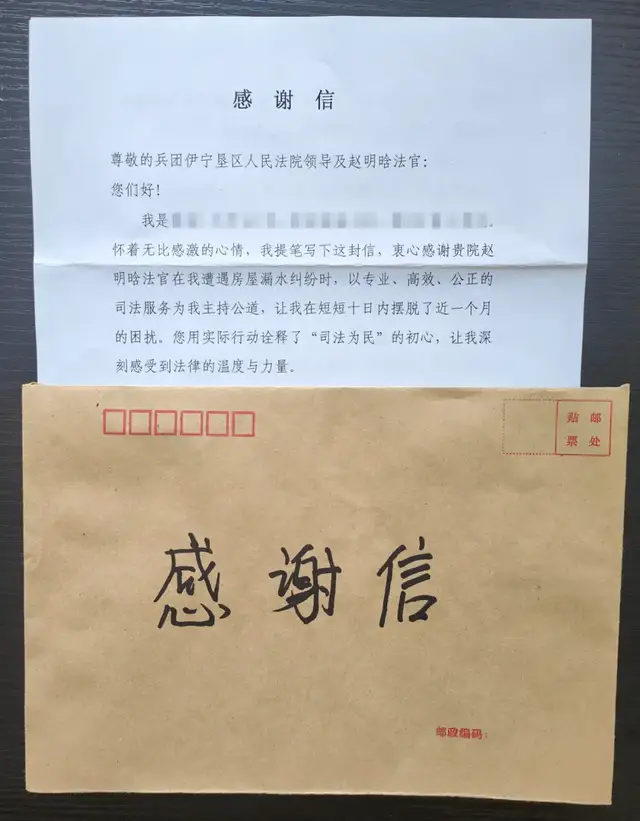 感谢信
尊敬的兵团伊宁垦区人民法院领导及赵明晗法官：
您们好！
我是
怀着无比感激的心情，我提笔写下这封信，衷心感谢贵院赵
明晗法官在我遭遇房屋漏水纠纷时，以专业、高效、公正的
司法服务为我主持公道，让我在短短十日内摆脱了近一个月
的困扰。您用实际行动诠释了“司法为民”的初心，让我深
刻感受到法律的温度与力量。
贴邮
票处
感谢信
邮政编码：